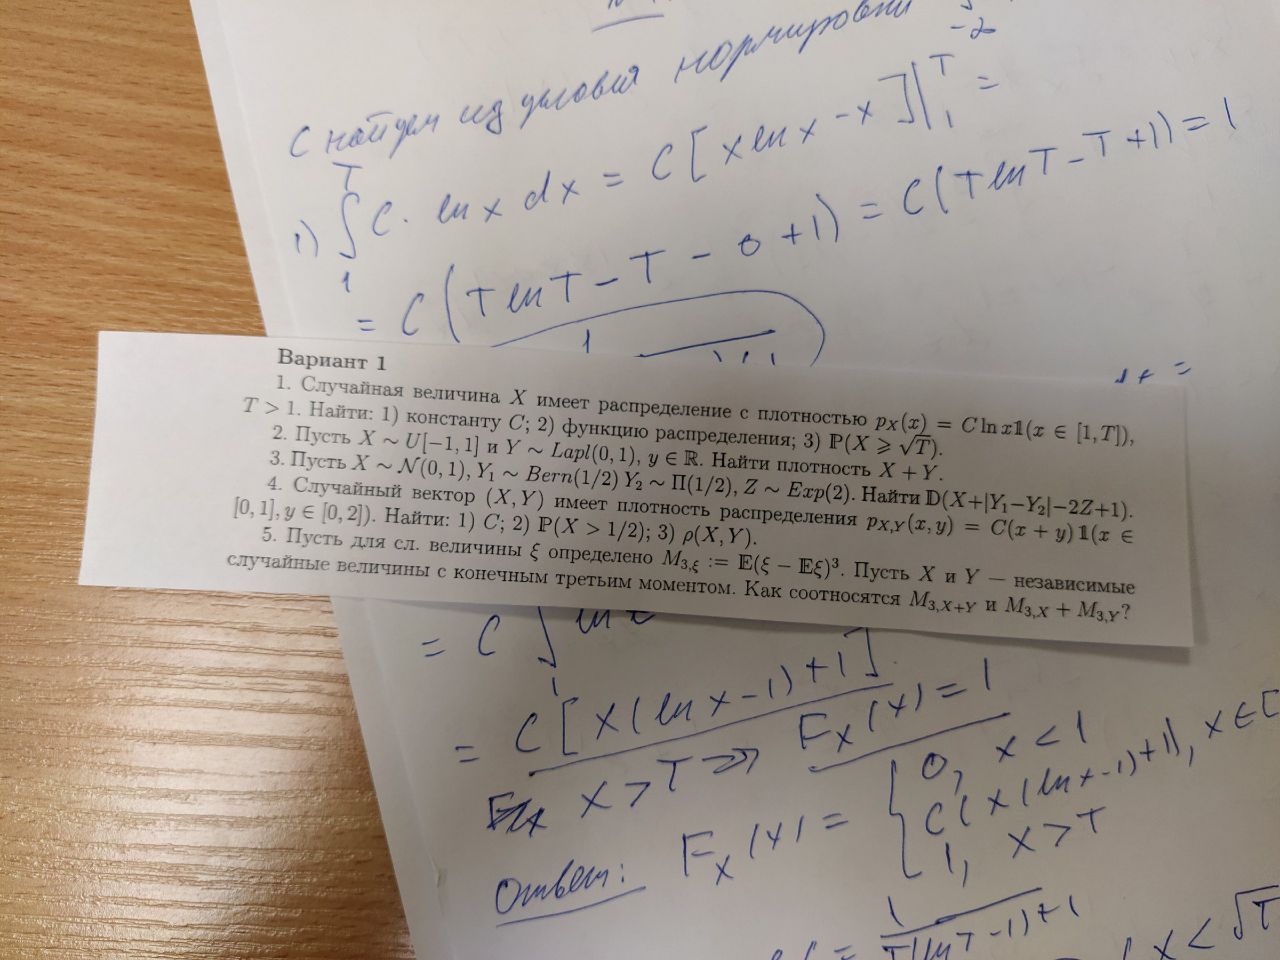 С найдем из условия нормировки
1) ∫₁ᵀ C · ln x dx = C [x ln x - x]|₁ᵀ =
= C (T ln T - T - 0 + 1) = C (T ln T - T + 1) = 1
Вариант 1
1. Случайная величина X имеет распределение с плотностью p_X(x) = C ln x𝟙(x ∈ [1, T]),
T > 1. Найти: 1) константу C; 2) функцию распределения; 3) ℙ(X ⩾ √T).
2. Пусть X ∼ U[−1, 1] и Y ∼ Lapl(0, 1), y ∈ ℝ. Найти плотность X + Y.
3. Пусть X ∼ 𝒩(0, 1), Y₁ ∼ Bern(1/2) Y₂ ∼ Π(1/2), Z ∼ Exp(2). Найти 𝔻(X+|Y₁−Y₂|−2Z+1).
4. Случайный вектор (X, Y) имеет плотность распределения p_{X,Y}(x, y) = C(x + y)𝟙(x ∈
[0, 1], y ∈ [0, 2]). Найти: 1) C; 2) ℙ(X > 1/2); 3) ρ(X, Y).
5. Пусть для сл. величины ξ определено M_{3,ξ} := 𝔼(ξ − 𝔼ξ)³. Пусть X и Y — независимые
случайные величины с конечным третьим моментом. Как соотносятся M_{3,X+Y} и M_{3,X} + M_{3,Y}?
= C ∫₁ ln
= C [x (ln x - 1) + 1]
x > T ⇒ F_X(x) = 1
Ответ: F_X(x) = { 0, x < 1
C (x (ln x - 1) + 1), x ∈ [
1, x > T
= 1 / T(ln T - 1) + 1
x < √T